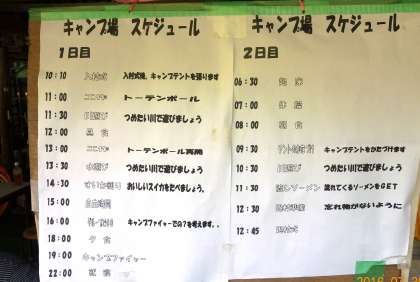 キャンプ場 スケジュール
1日目
10:10 入村式 入村式後、キャンプテントを張ります
11:00 ミニゲーム トーテンポール
11:30 川遊び つめたい川で遊びましょう
12:00 昼食
13:00 トーテンポール再開
13:30 水遊び つめたい川で遊びましょう
14:30 すいか割り おいしいスイカをたべましょう。
15:00 自由時間
16:00 キャンプファイヤーでの?を考えます。
18:00 夕食
19:00 キャンプファイヤー
22:00 就寝
キャンプ場 スケジュール
2日目
06:30 起床
07:00 体操
08:00 朝食
09:30 テント後片付 キャンプテントをかたづけます
10:30 川遊び つめたい川で遊びましょう
11:30 流しソーメン 流れてくるソーメンをGET
12:30 忘れ物がないように
12:45